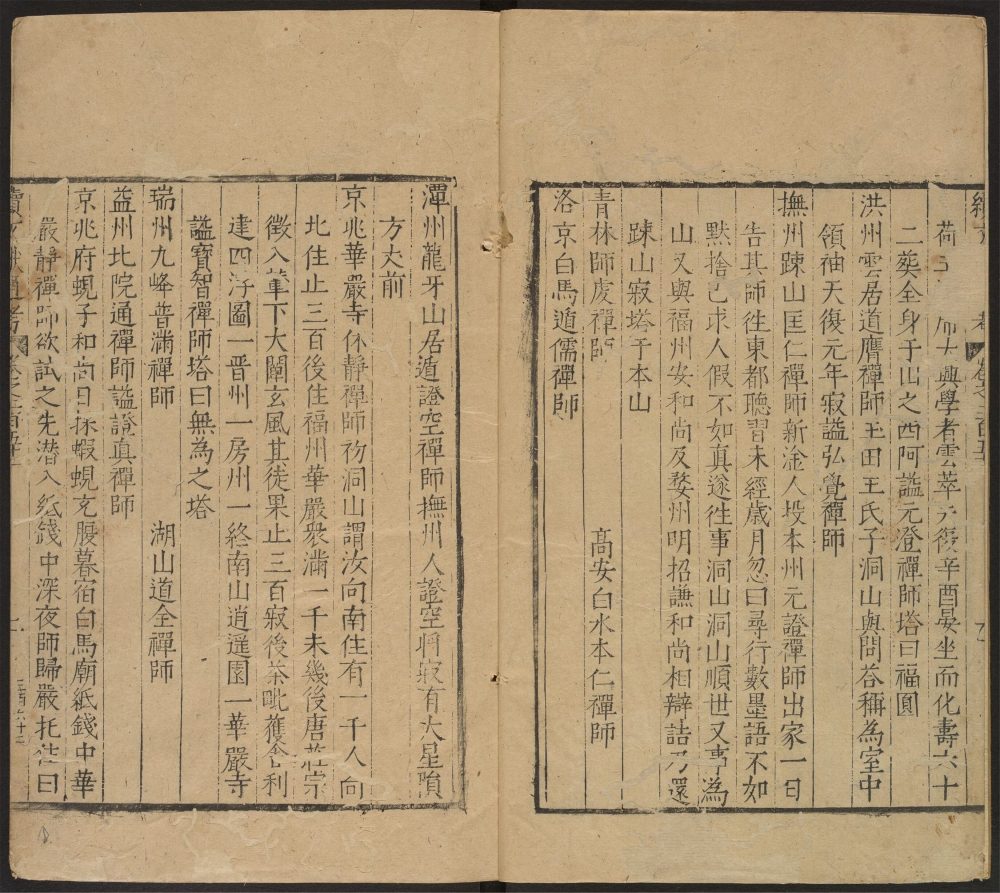 荷玉 大興學者雲萃天復辛酉晏坐而化壽六十
二葬全身于山之西阿諡元澄禪師塔曰福圓
洪州雲居道膺禪師王田王氏子洞山與問荅稱為室中
領袖天復元年寂諡弘覺禪師
撫州踈山匡仁禪師新淦人投本州元證禪師出家一日
告其師往東都聽習未經歲月忽曰尋行數墨語不如
默捨己求人假不如真遂往事洞山洞山順世又事為
山又與福州安和尚及婺州明招謙和尚相辯詰乃還
踈山寂塔于本山
青林師虔禪師 高安白水本仁禪師
洛京白馬遁儒禪師
潭州龍牙山居遁證空禪師撫州人證空將寂有大星隕
方丈前
京兆華嚴寺休靜禪師初洞山謂汝向南住有一千人向
北住止三百後住福州華嚴衆滿一千未幾後唐莊宗
徵入輦下大闡玄風其徒果止三百寂後茶毗獲舍利
建四浮圖一晋州一房州一終南山逍遥園一華嚴寺
諡寶智禪師塔曰無為之塔
瑞州九峰普滿禪師 湖山道全禪師
益州北院通禪師諡證真禪師
京兆府蜆子和尚日採蝦蜆充腹暮宿白馬廟紙錢中華
嚴靜禪師欲試之先潜入紙錢中深夜師歸嚴托住曰